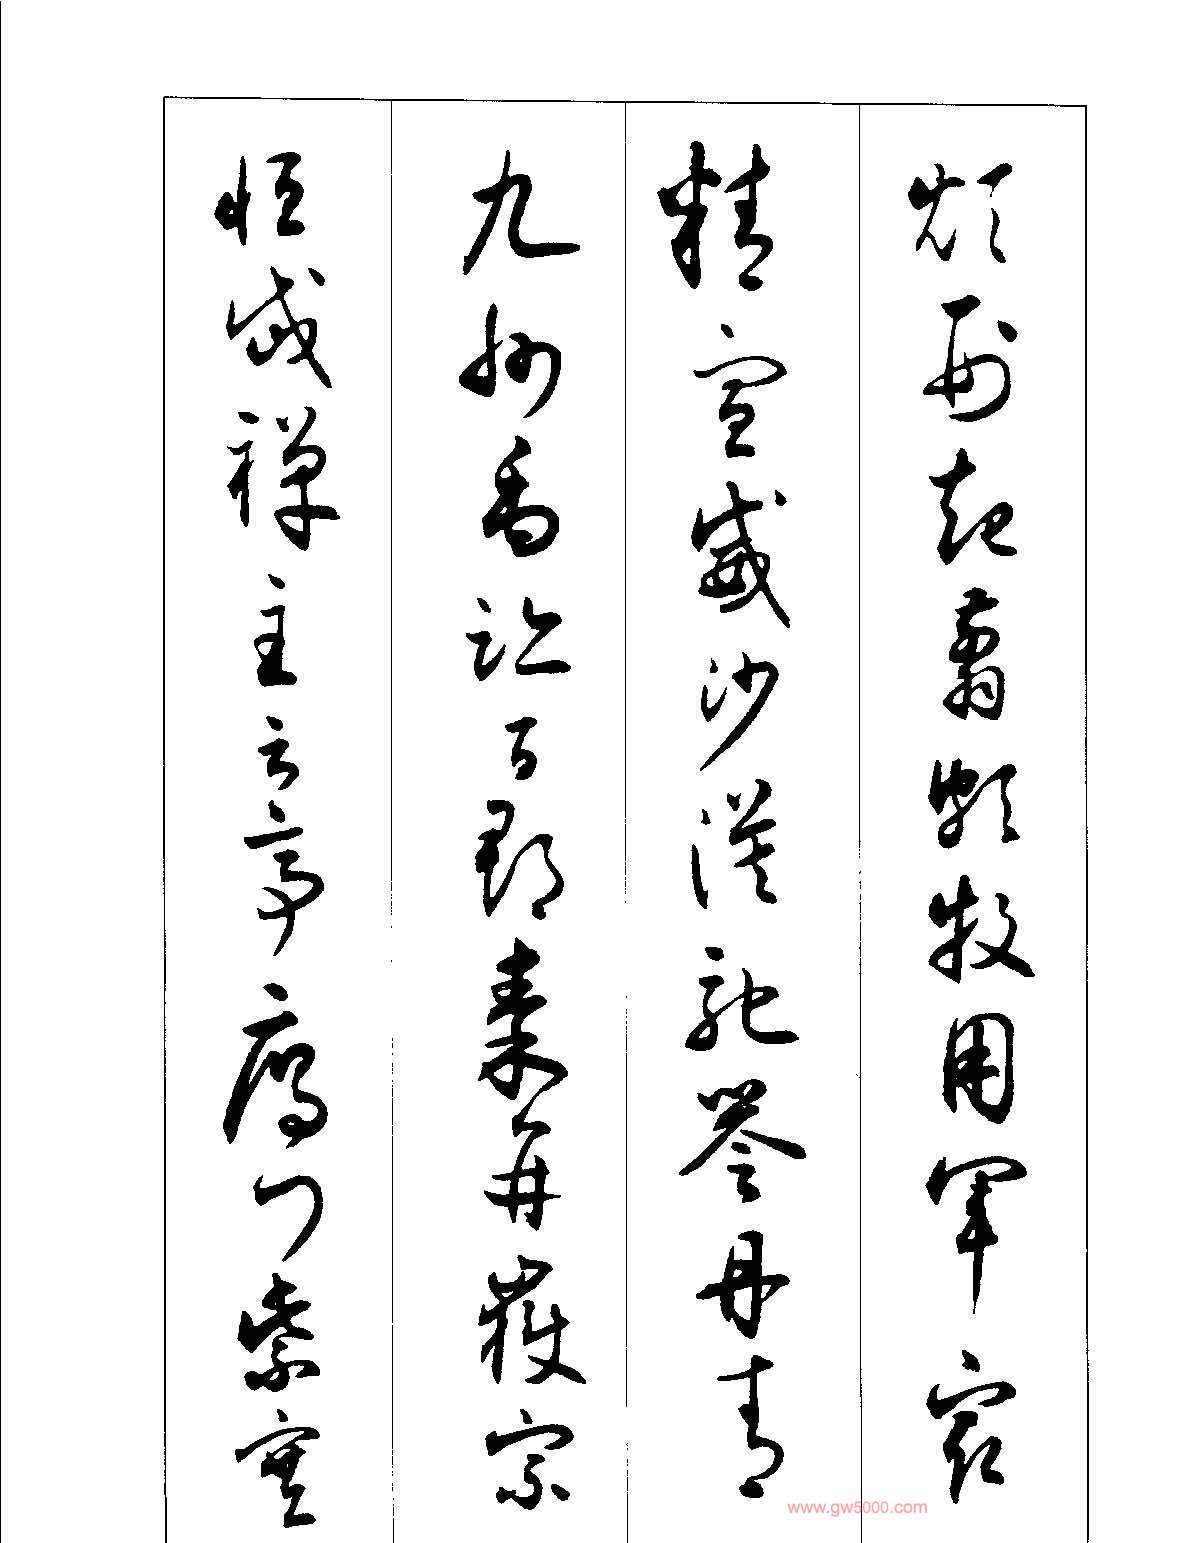 烦刑起翦颇牧用军最
精宣威沙漠驰誉丹青
九州禹迹百郡秦并嶽宗
恒岱禅主云亭雁门紫塞
www.gw5000.com